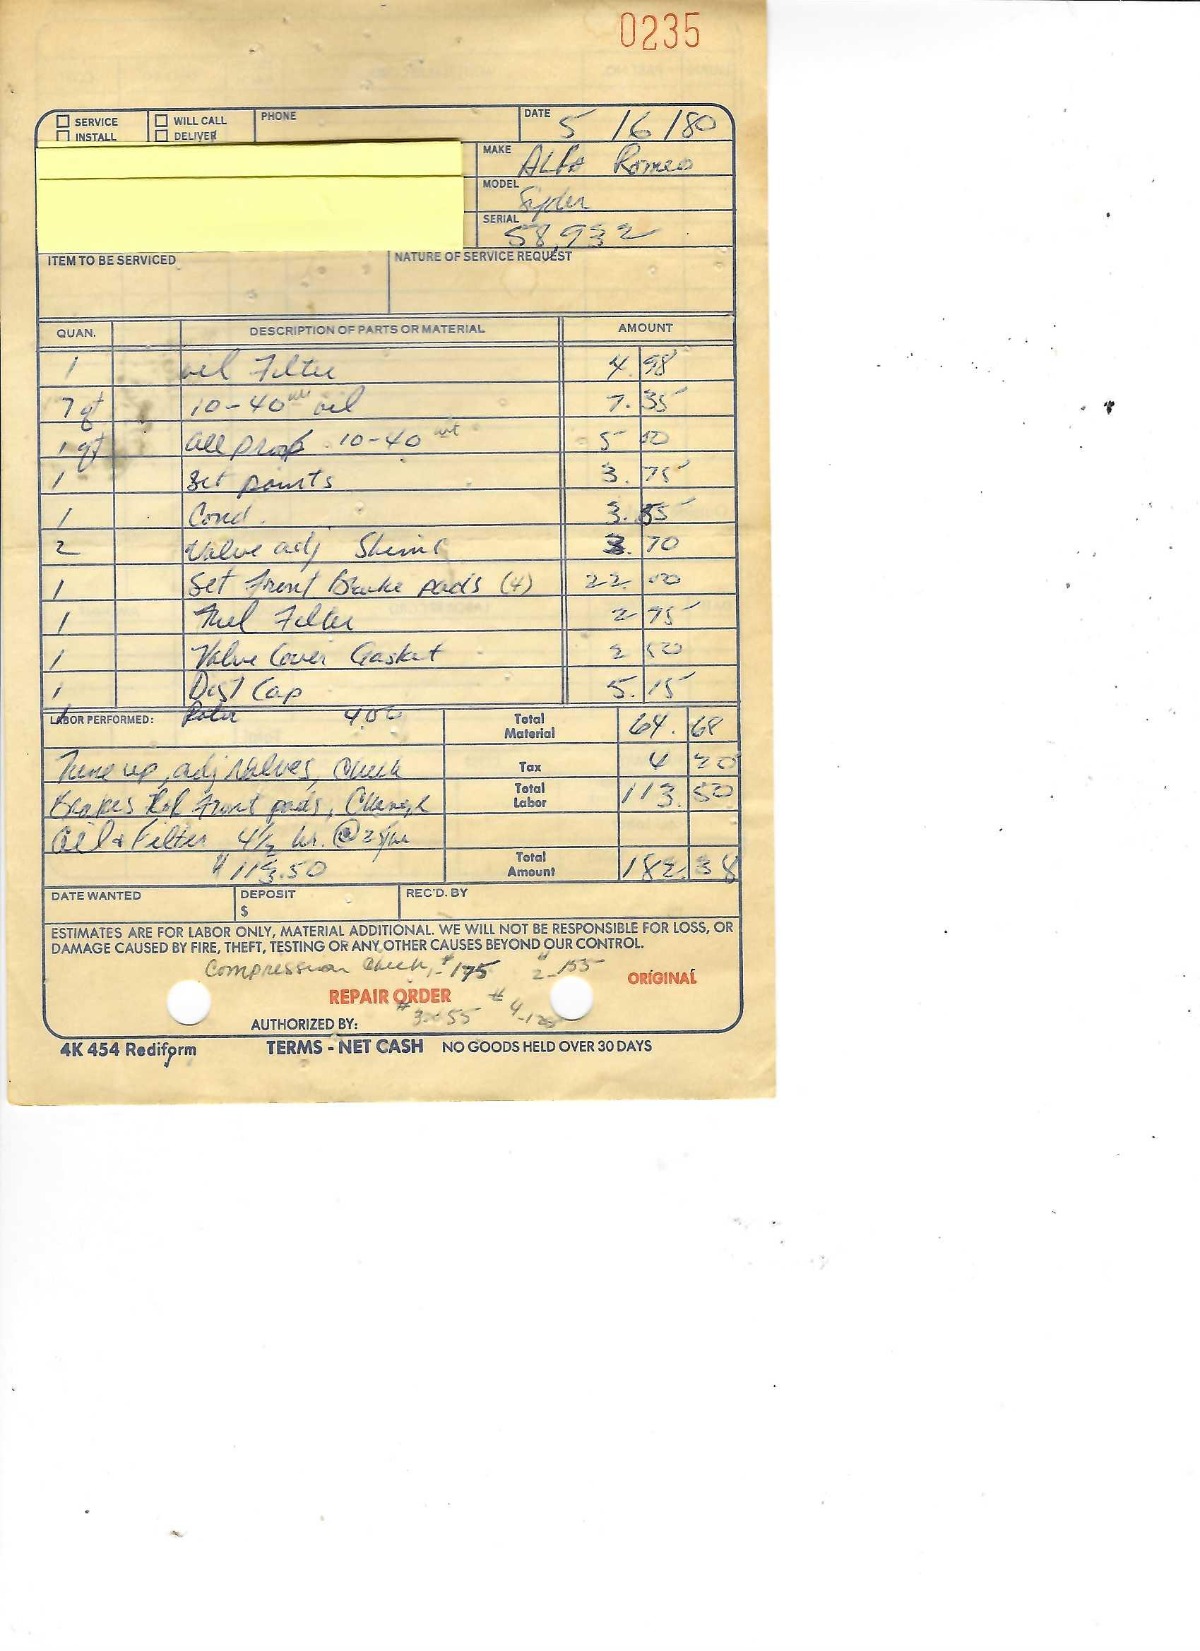 0235
SERVICE WILL CALL PHONE DATE 5/6/80
INSTALL DELIVER
MAKE Alfa Romeo
MODEL Spder
SERIAL 58,932
ITEM TO BE SERVICED NATURE OF SERVICE REQUEST
QUAN. DESCRIPTION OF PARTS OR MATERIAL AMOUNT
1 oil Filter 4.98
7 qt 10-40 wt oil 7.35
1 qt 10-40 wt 5 00
1 Set points 3.75
1 Cond. 3.85
2 Valve adj Shims 3.70
1 Set Front Brake pads (4) 22.00
1 Fuel Filter 2 75
1 Valve Cover Gasket 2 50
1 Dist Cap 5.15
1 Rotor 4.00
LABOR PERFORMED: Total Material 64.68
Tune up, adj valves, Check Tax 4 20
Brakes R&R Front pads, Change Total Labor 113.50
Oil & Filter 4½ hr. @ 25/hr
$113.50 Total Amount 182.38
DATE WANTED DEPOSIT REC'D. BY
$
ESTIMATES ARE FOR LABOR ONLY, MATERIAL ADDITIONAL. WE WILL NOT BE RESPONSIBLE FOR LOSS, OR
DAMAGE CAUSED BY FIRE, THEFT, TESTING OR ANY OTHER CAUSES BEYOND OUR CONTROL.
Compression Check, #175 #2-155
ORIGINAL
REPAIR ORDER
AUTHORIZED BY:
4K 454 Rediform TERMS - NET CASH NO GOODS HELD OVER 30 DAYS